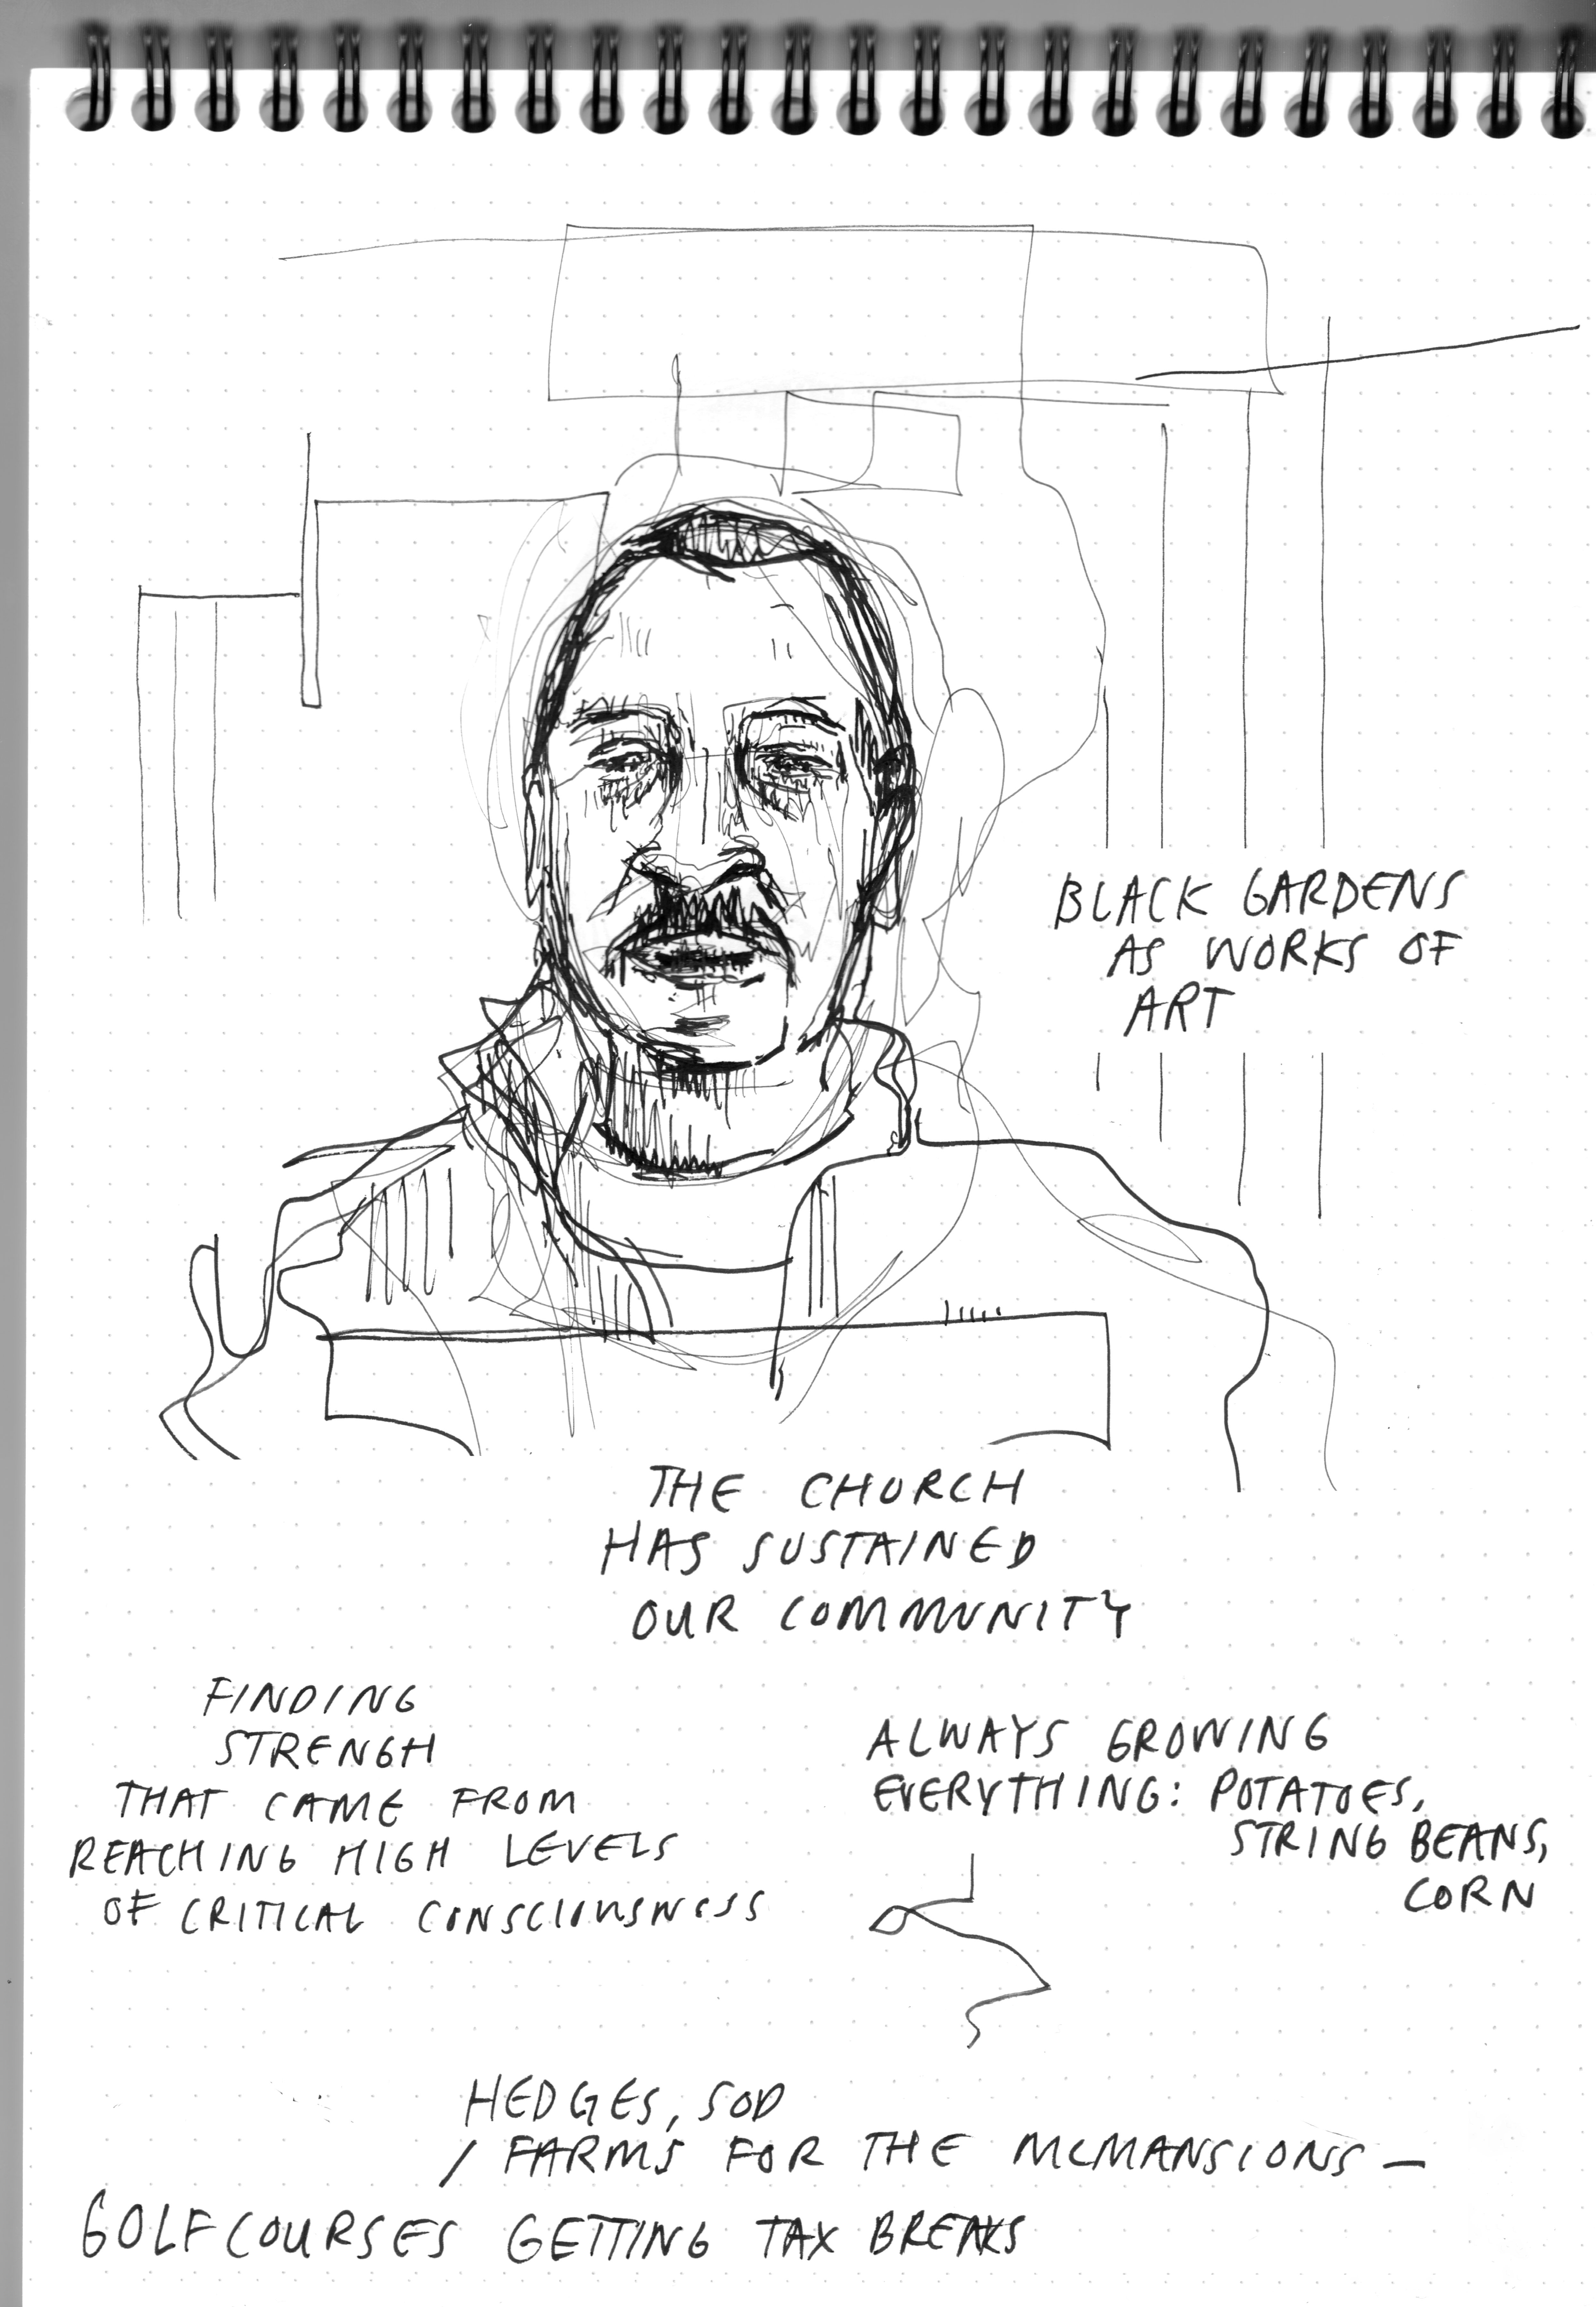 BLACK GARDENS
AS WORKS OF
ART
THE CHURCH
HAS SUSTAINED
OUR COMMUNITY
FINDING
STRENGH
THAT CAME FROM
REACHING HIGH LEVELS
OF CRITICAL CONSCIOUSNESS
ALWAYS GROWING
EVERYTHING: POTATOES,
STRING BEANS,
CORN
HEDGES, SOD
/ FARMS FOR THE MCMANSIONS —
GOLFCOURSES GETTING TAX BREAKS